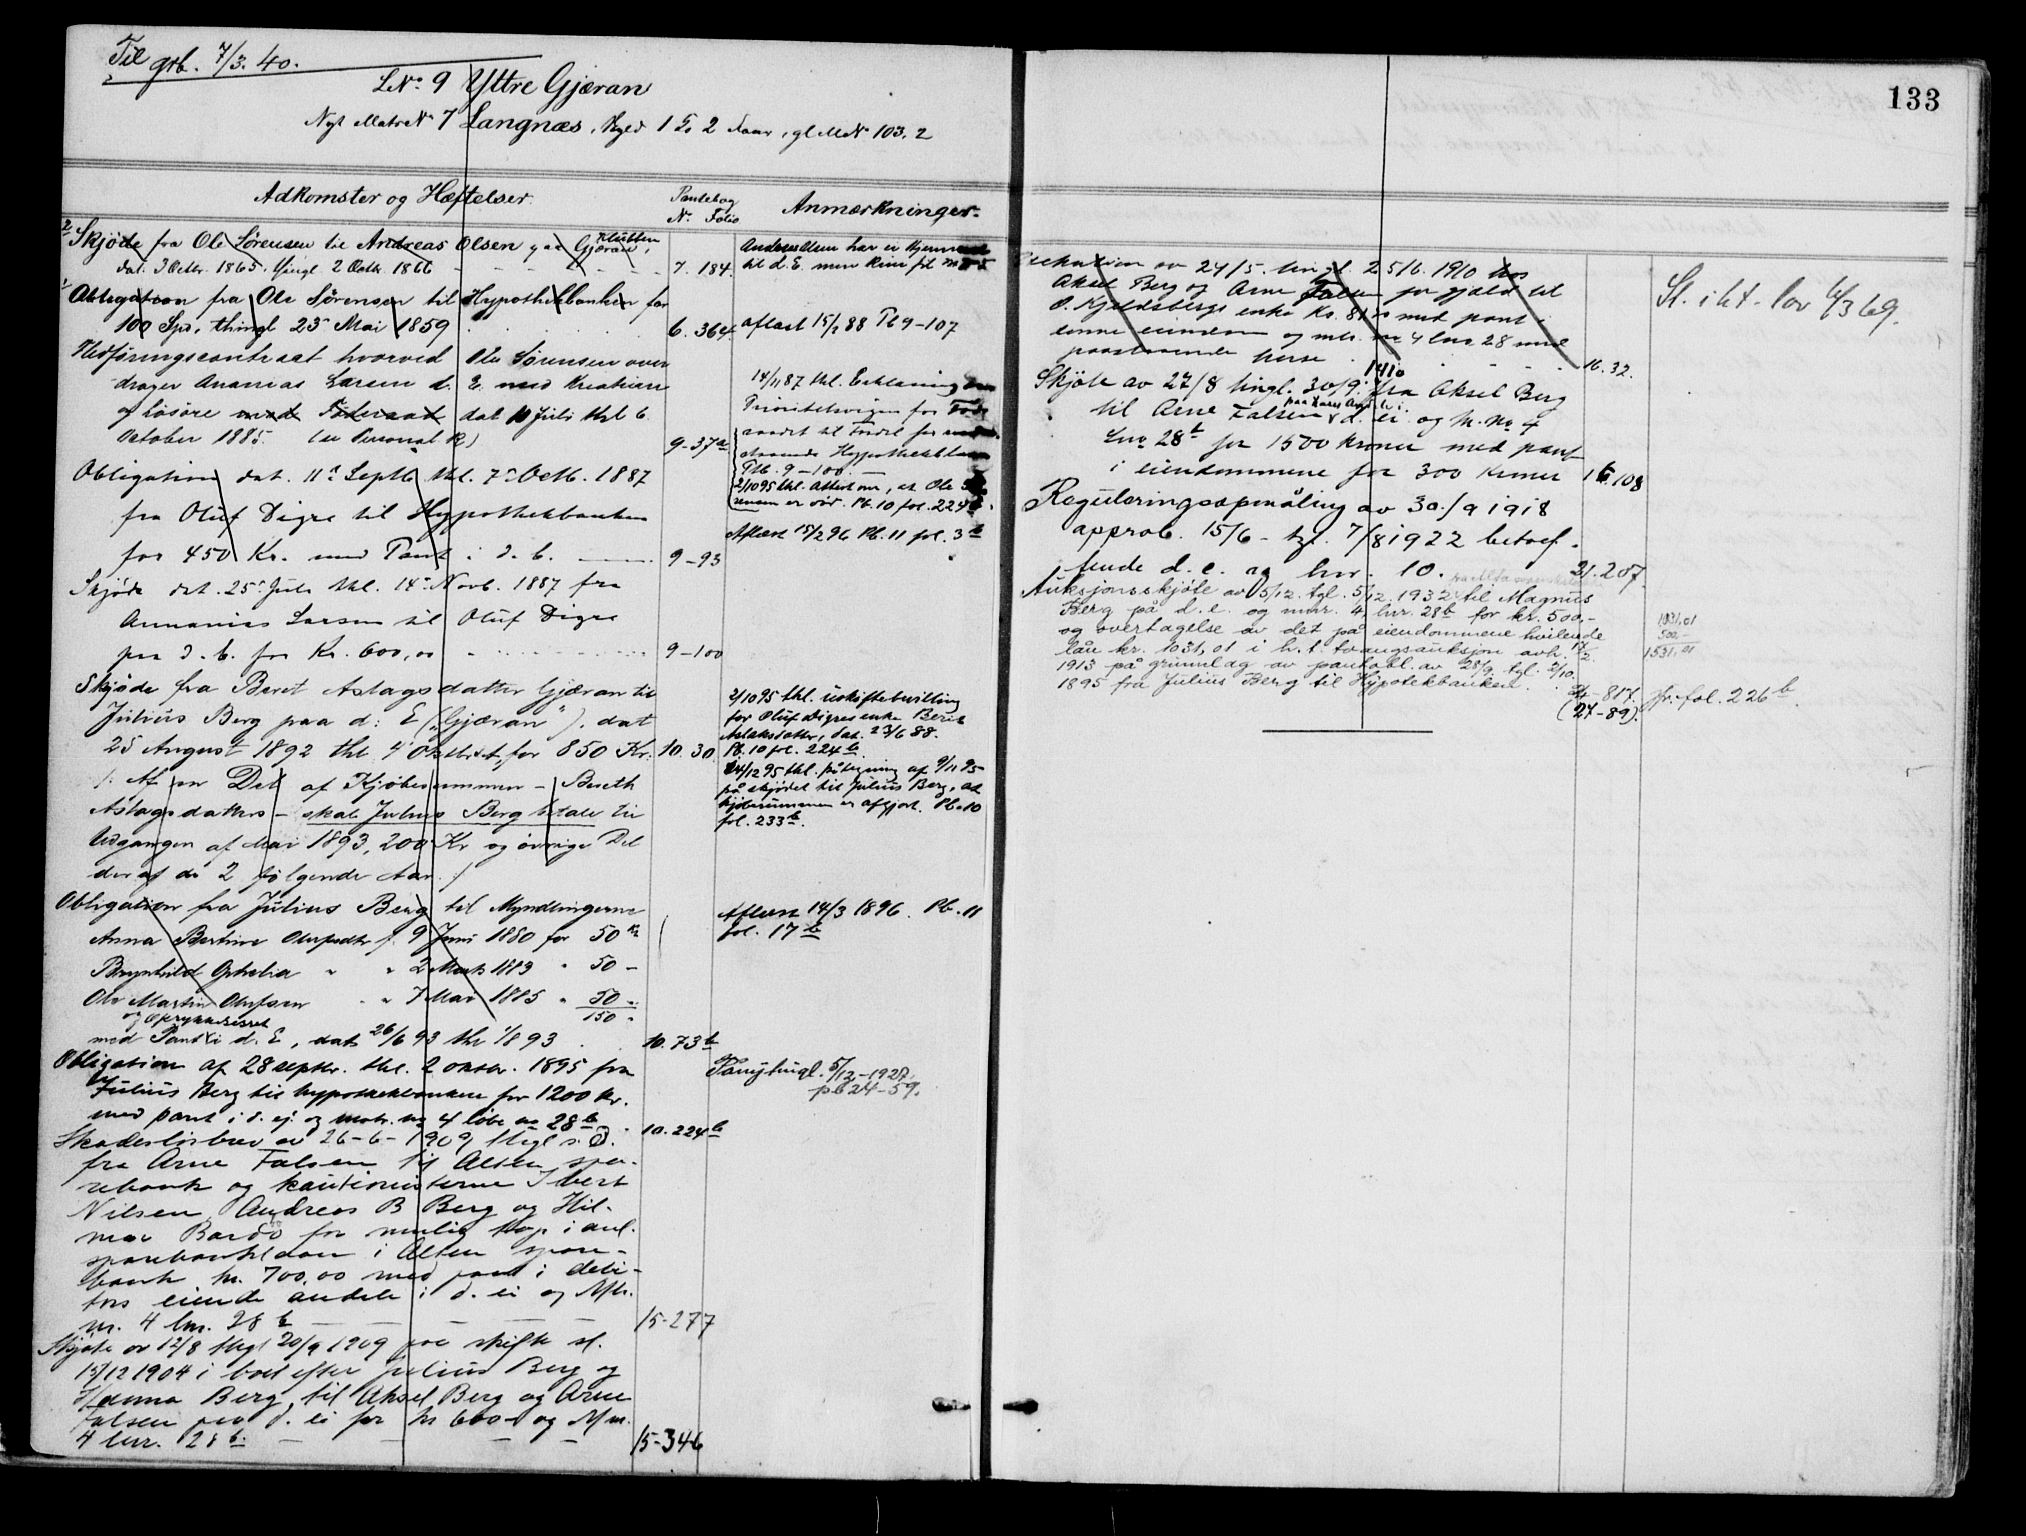 Til grb. 7/3. 40.
LNo 9 Yttre Gjæran
Nyt MatrNo 7 Langnæs, Skyld 1 2 , gl MNo 103. 2
Adkomster og Hæftelser.
Pantebog
No Folio
Anmærkninger.
2 Skjøde fra Ole Sørensen til Andreas Olsen paa Gjæran,
Klubben
dat. 3 Octbr. 1865. thingl. 2 Octbr. 1866
7. 184.
Obligation fra Ole Sørensen til Hypothekbanken for
100 Spd, thingl 23 Mai 1859
6. 364.
aflæst 15/2 88 Pb 9-107
Kedføringscontract hvorved Ole Sørensen over
drager Ananias Larsen d. E. med Kreaturer
og Løsøre mod Føderaad dat 10 Juli thl 6
October 1885. (se Personal R)
9-37a
14/11 87 thl. Erklæring om
Prioritetsvigen for Føde
raadet til Fordel for
staaende Hypotheklaan
Pb. 9-100.
2/10 95 thl. Attest om, at Ole Sø
rensen er død. Pb. 10 fol. 224b.
Obligation dat. 11te Septb. thl. 7de Octb. 1887
fra Oluf Digre til Hypothekbanken
for 450 Kr. med Pant i d. E.
9-93
Aflæst 15/2 96 Pb. 11 fol. 3b
Skjøde dat. 25de Juli thl. 14de Novb. 1887 fra
Annanias Larsen til Oluf Digre
paa d. E. for Kr. 600,00
9-100
Skjøde fra Beret Aslagsdatter Gjæran til
Julius Berg paa d: E ("Gjæran"). dat
25 August 1892 thl 4 Oktbr. for 850 Kr.
10. 30
/: Af en Del af Kjøbesummen - Bereth
Aslagsdatters - skal Julius Berg betale til
Udgangen af Mai 1893, 200 Kr og øvrige Del
deraf de 2 følgende Aar. :/
2/10 95 thl. uskiftebevilling
for Oluf Digres enke Berit
Aslaksdatter, dat. 23/6 88.
Pb. 10 fol. 224b.
24/12 95 thl. påtegning af 9/11 95
på skjødet til Julius Berg, at
kjøbesummen er afgjort. Pb. 10
fol. 233b.
Obligation fra Julius Berg til Myndlingerne
Anna Bertine Olufsdtr f. 9 Juni 1880 for 50 Kr
Brynhild Ophelia " " 2 Marts 1883 " 50 -
Ole Martin Olufsen " " 7 Mai 1885 " 50 -
150 -
og Oprykkelsesret
med Pant i d. E, dat 26/6 93 thl 1/8 93
10. 73b
Aflæst 14/3 1896. Pb. 11
fol. 17b
Obligation af 28 septbr. thl. 2 oktbr. 1895 fra
Julius Berg til hypothekbanken for 1200 kr.
med pant i d. ej. og matr. no 4 løbe no 28b.
10. 224b
Panytingl. 5/12-1927.
pb 24-59.
Skadesløsbrev av 26-6-1909 tlegl s. d.
fra Arne Falsen til Alten spa-
rebank og kautionisterne Ibert
Nilsen, Andreas B Berg og Hil-
mar Bardo for mulig tap i anl.
sparebanklaan i Alten spare-
bank kr. 700,00 med pant i debi-
tors eiende andele i d. ei og Mtr.
nr. 4 lnr. 28b
15-277
Skjøte av 12/8 tlegl 20/9 1909 paa skifte sl.
15/12 1904 i boet efter Julius Berg og
Hanna Berg, til Aksel Berg og Arne
Falsen paa d. ei for kr 600- og Mnr.
4 lnr. 28b.
15-346
133
Exekution av 24/5. tingl. 25/6. 1910 hos
Aksel Berg og Arne Falsen for gjæld til
O. Kjeldsbergs enke Kr. 81 med pant i
denne eiendom og mtr. no 4 lno 28 med
paastaaende huse
16. 32.
1910
Skjøte av 27/8 tingl. 30/9. fra Aksel Berg
til Arne Falsen d. ei og M. No 4
Lno 28b for 1500 kroner med pant
i eiendommene for 300 kroner
16. 108
Reguleringsopmåling av 30./9 1918
approb. 15/6 - tgl. 7/8 1922 betref-
fende d. e. og lnr. 10.
21. 207.
Auksjonsskjøte av 15/12. tgl. 5/12. 1932 til Magnus
Berg på d. e. og mnr. 4, lnr. 28b for kr. 500,-
og overtagelse av det på eiendommene hvilende
lån kr. 1031,01 i h. t. tvangsauksjon avh. 17/2.
1913 på grunnlag av pantobl. av 28/9. tgl. 2/10.
1895 fra Julius Berg til Hypotekbanken.
24-817.
(27-89).
1031,01
500,-
1531,01
jfr. fol. 226b.
Sl. i h.t. lov 4/3 69.